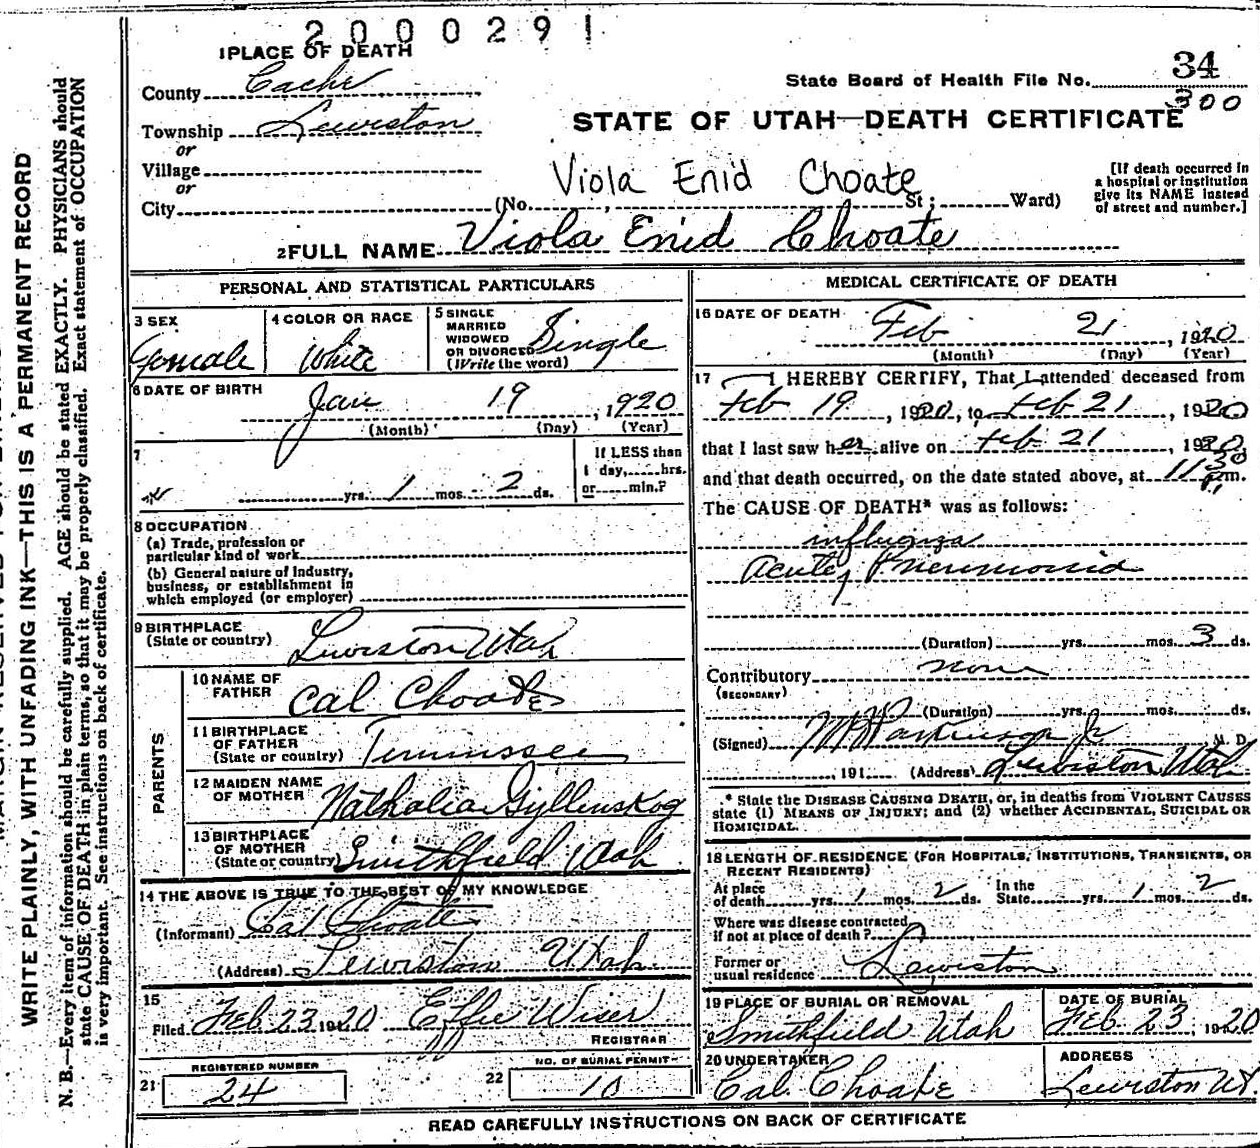 2000291
1 PLACE OF DEATH
County Cache
State Board of Health File No. 34
300
Township Lewiston
or
STATE OF UTAH—DEATH CERTIFICATE
Village
or
Viola Enid Choate
[If death occurred in
a hospital or institution
give its NAME instead
of street and number.]
City (No. St; Ward)
2 FULL NAME Viola Enid Choate
PERSONAL AND STATISTICAL PARTICULARS
3 SEX
Female
4 COLOR OR RACE
White
5 SINGLE
MARRIED
WIDOWED
OR DIVORCED Single
(Write the word)
6 DATE OF BIRTH
Jan 19, 1920
(Month) (Day) (Year)
7
yrs. 1 mos. 2 ds.
If LESS than
1 day, hrs.
or min.?
8 OCCUPATION
(a) Trade, profession or
particular kind of work
(b) General nature of industry,
business, or establishment in
which employed (or employer)
9 BIRTHPLACE
(State or country) Lewiston Utah
PARENTS
10 NAME OF
FATHER Cal Choate
11 BIRTHPLACE
OF FATHER
(State or country) Tennessee
12 MAIDEN NAME
OF MOTHER Nathalia Gyllenskog
13 BIRTHPLACE
OF MOTHER
(State or country) Smithfield Utah
14 THE ABOVE IS TRUE TO THE BEST OF MY KNOWLEDGE
(Informant) Cal Choate
(Address) Lewiston Utah.
15
Filed Feb 23 1920 Effie Wiser
REGISTRAR
REGISTERED NUMBER
21 24
NO. OF BURIAL PERMIT
22 10
MEDICAL CERTIFICATE OF DEATH
16 DATE OF DEATH Feb 21, 1920
(Month) (Day) (Year)
17 I HEREBY CERTIFY, That I attended deceased from
Feb 19, 1920, to Feb 21, 1920
that I last saw her alive on Feb 21, 1920,
and that death occurred, on the date stated above, at 11 30 P.m.
The CAUSE OF DEATH* was as follows:
influenza
Acute
(Duration) yrs. mos. 3 ds.
Contributory none
(SECONDARY)
(Duration) yrs. mos. ds.
(Signed) Parkinson Jr M. D.
, 191 (Address) Lewiston Utah
* State the DISEASE CAUSING DEATH, or, in deaths from VIOLENT CAUSES
state (1) MEANS OF INJURY; and (2) whether ACCIDENTAL, SUICIDAL OR
HOMICIDAL.
18 LENGTH OF RESIDENCE (FOR HOSPITALS, INSTITUTIONS, TRANSIENTS, OR
RECENT RESIDENTS)
At place
of death yrs. 1 mos. 2 ds.
In the
State yrs. 1 mos. 2 ds.
Where was disease contracted
if not at place of death?
Former or
usual residence Lewiston
19 PLACE OF BURIAL OR REMOVAL
Smithfield Utah
DATE OF BURIAL
Feb 23, 1920
20 UNDERTAKER
Cal Choate
ADDRESS
Lewiston Ut.
READ CAREFULLY INSTRUCTIONS ON BACK OF CERTIFICATE
WRITE PLAINLY, WITH UNFADING INK—THIS IS A PERMANENT RECORD
N. B.—Every item of information should be carefully supplied. AGE should be stated EXACTLY. PHYSICIANS should
state CAUSE OF DEATH in plain terms, so that it may be properly classified. Exact statement of OCCUPATION
is very important. See instructions on back of certificate.